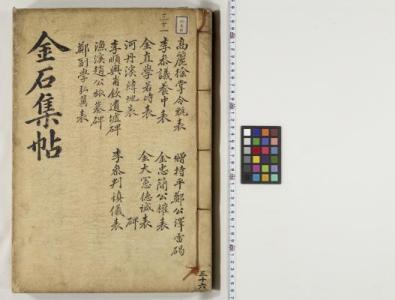 金石集帖
三十一
高麗徐掌令甄表
李參議養中表
金直學若時表
河丹溪緯地表
李順興甫欽遺墟碑
漁溪趙公旅墓碑
鄭副學弘翼表
贈持平鄭公澤雷碣
金忠簡公權表
金大憲德諴表
碑
李參判愼儀表
三十六